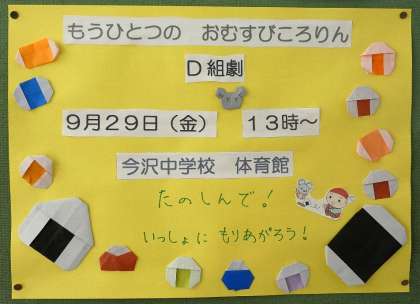 もうひとつの おむすびころりん
D組劇
9月29日（金） 13時～
今沢中学校 体育館
たのしんで！
いっしょに もりあがろう！